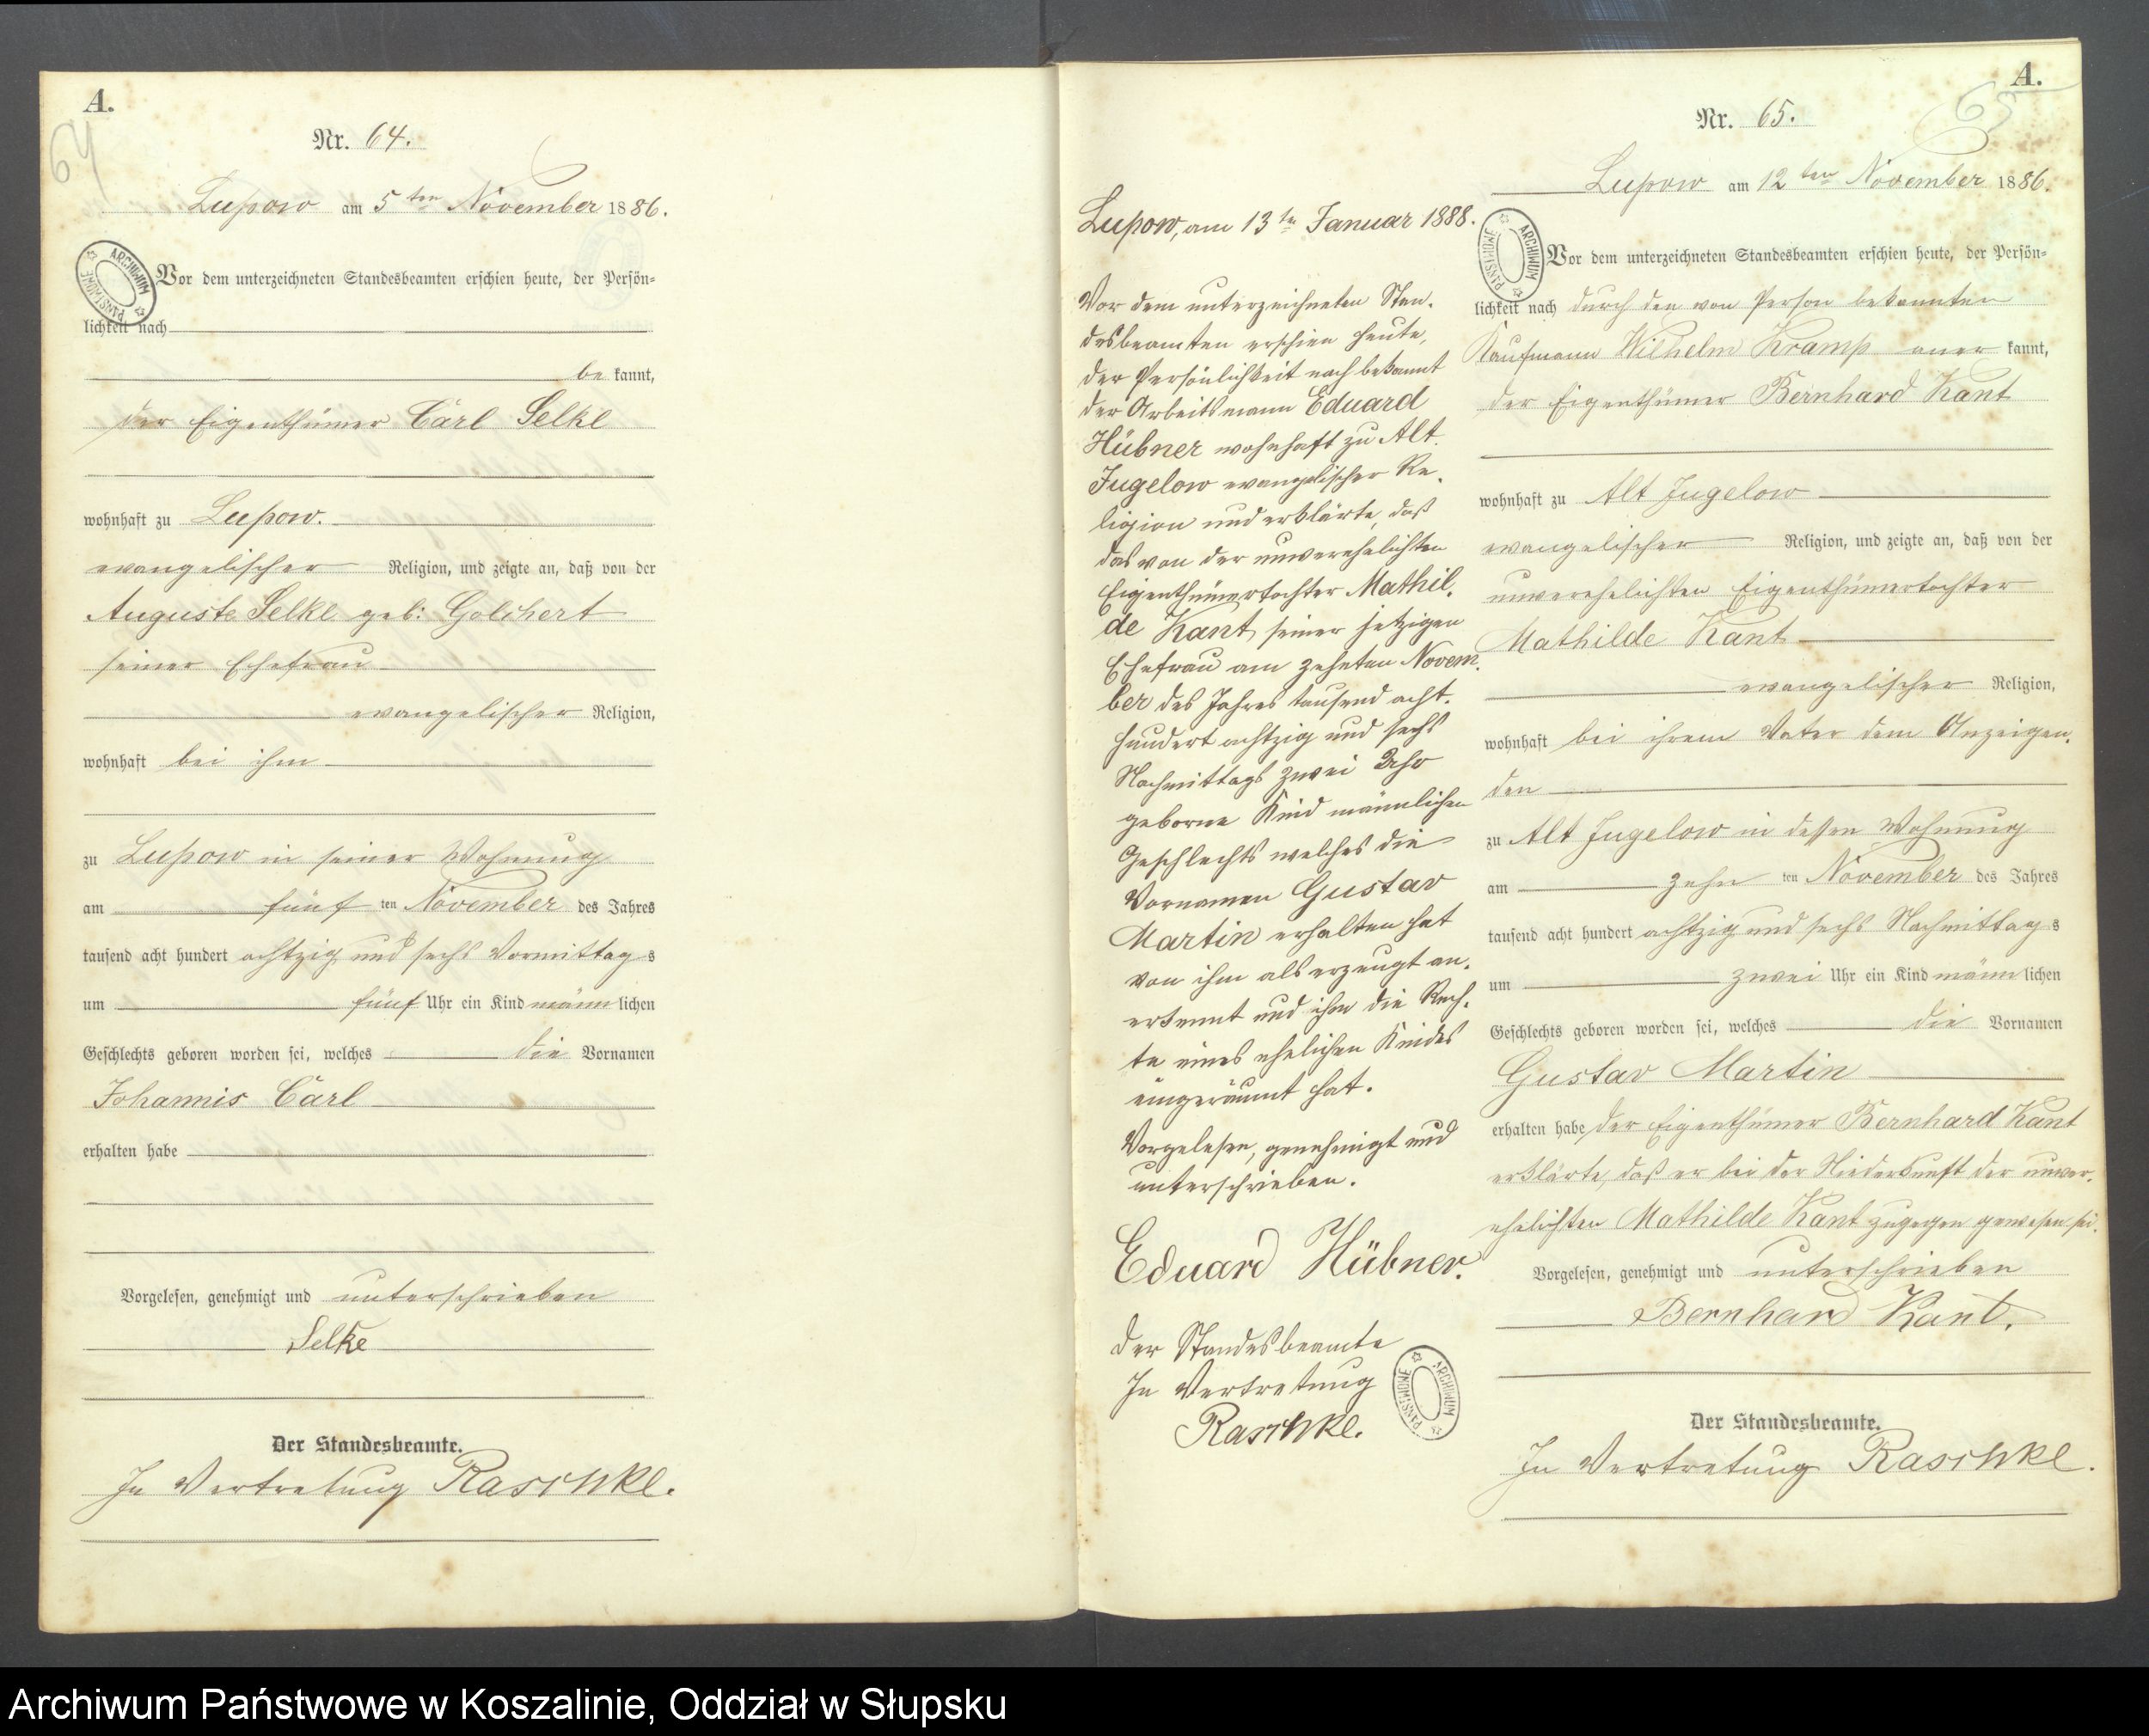 A.
64
Nr. 64.
Lupow am 5ten November 1886.
Vor dem unterzeichneten Standesbeamten erschien heute, der Persön=
lichkeit nach
be kannt,
der Eigenthümer Carl Selke
wohnhaft zu Lupow.
evangelischer Religion, und zeigte an, daß von der
Auguste Selke geb: Golchert
seiner Ehefrau
evangelischer Religion,
wohnhaft bei ihm
zu Lupow in seiner Wohnung
am fünf ten November des Jahres
tausend acht hundert achtzig und sechs Vormittag s
um fünf Uhr ein Kind männ lichen
Geschlechts geboren worden sei, welches die Vornamen
Johannis Carl
erhalten habe
Vorgelesen, genehmigt und unterschrieben
Selke
Der Standesbeamte.
In Vertretung Raschke.
Lupow, am 13tn Januar 1888.
Vor dem unterzeichneten Stan.
desbeamten erschien heute,
der Persönlichkeit nach bekannt
der Arbeitsmann Eduard
Hübner wohnhaft zu Alt.
Jugelow evangelischer Re.
ligion und erklärte, daß
das von der unverehelichten
Eigenthümertochter Mathil.
de Kant, seiner jetzigen
Ehefrau am zehnten Novem.
ber des Jahres tausend acht.
hundert achtzig und sechs
Nachmittags zwei Uhr
geborne Kind männlichen
Geschlechts welches die
Vornamen Gustav
Martin erhalten hat
von ihm als erzeugt an.
erkennt und ihm die Rech.
te eines ehelichen Kindes
eingeräumt hat.
Vorgelesen, genehmigt und
unterschrieben.
Eduard Hübner.
Der Standesbeamte
In Vertretung
Raschke.
A.
65
Nr. 65.
Lupow am 12ten November 1886.
Vor dem unterzeichneten Standesbeamten erschien heute, der Persön=
lichkeit nach durch den von Person bekannten
Kaufmann Wilhelm Kramp aner kannt,
der Eigenthümer Bernhard Kant
wohnhaft zu Alt Jugelow
evangelischer Religion, und zeigte an, daß von der
unverehelichten Eigenthümertochter
Mathilde Kant
evangelischer Religion,
wohnhaft bei ihrem Vater dem Anzeigen.
den
zu Alt Jugelow in dessen Wohnung
am zehn ten November des Jahres
tausend acht hundert achtzig und sechs Nachmittag s
um zwei Uhr ein Kind männ lichen
Geschlechts geboren worden sei, welches die Vornamen
Gustav Martin
erhalten habe, der Eigenthümer Bernhard Kant
erklärte, daß er bei der Niederkunft der unver.
ehelichten Mathilde Kant zugegen gewesen sei.
Vorgelesen, genehmigt und unterschrieben
Bernhard Kant.
Der Standesbeamte.
In Vertretung Raschke.
ARCHIWUM PAŃSTWOWE
ARCHIWUM PAŃSTWOWE
ARCHIWUM PAŃSTWOWE
Archiwum Państwowe w Koszalinie, Oddział w Słupsku